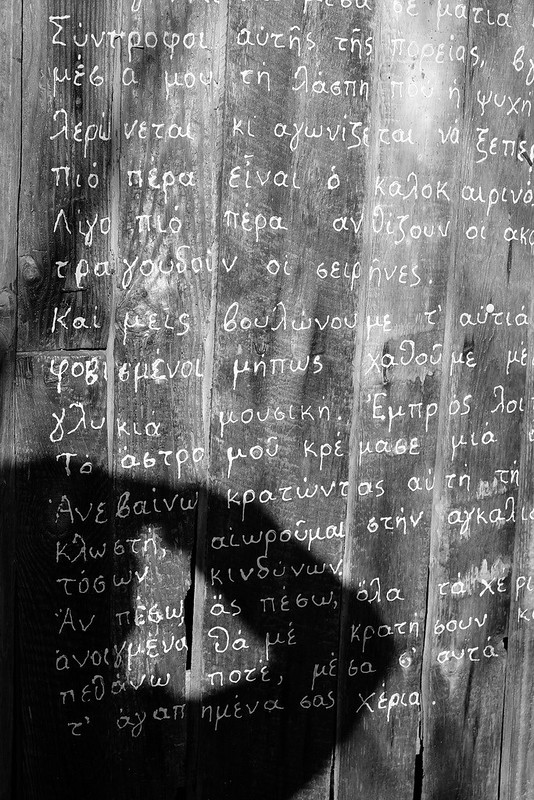 μέσα σὲ μάτια
Σύντροφοι αὐτῆς τῆς πορείας,
μέσα μου τὴ λάσπη ποὺ ἡ ψυχή
λερώνεται κι ἀγωνίζεται νά
πιό πέρα εἶναι ὁ καλοκαιρινό
Λίγο πιό πέρα ἀνθίζουν οι
τραγουδοῦν οἱ σειρῆνες.
Καί μεῖς βουλώνουμε τ' αὐτιά
φοβισμένοι μήπως χαθοῦμε
γλυκιά μουσική. Ἐμπρός
Τό ἄστρο μοῦ κρέμασε μιά
Ἀνεβαίνω κρατώντας αὐτή τή
κλωστή, αἰωροῦμαι στήν
τόσων κινδύνων
Ἄν πέσω, ἄς πέσω, ὅλα τά χέρι
ἀνοιγμένα θά μέ κρατήσουν
πεθάνω ποτέ, μέσα σ' αὐτά
τ' ἀγαπημένα σας χέρια.